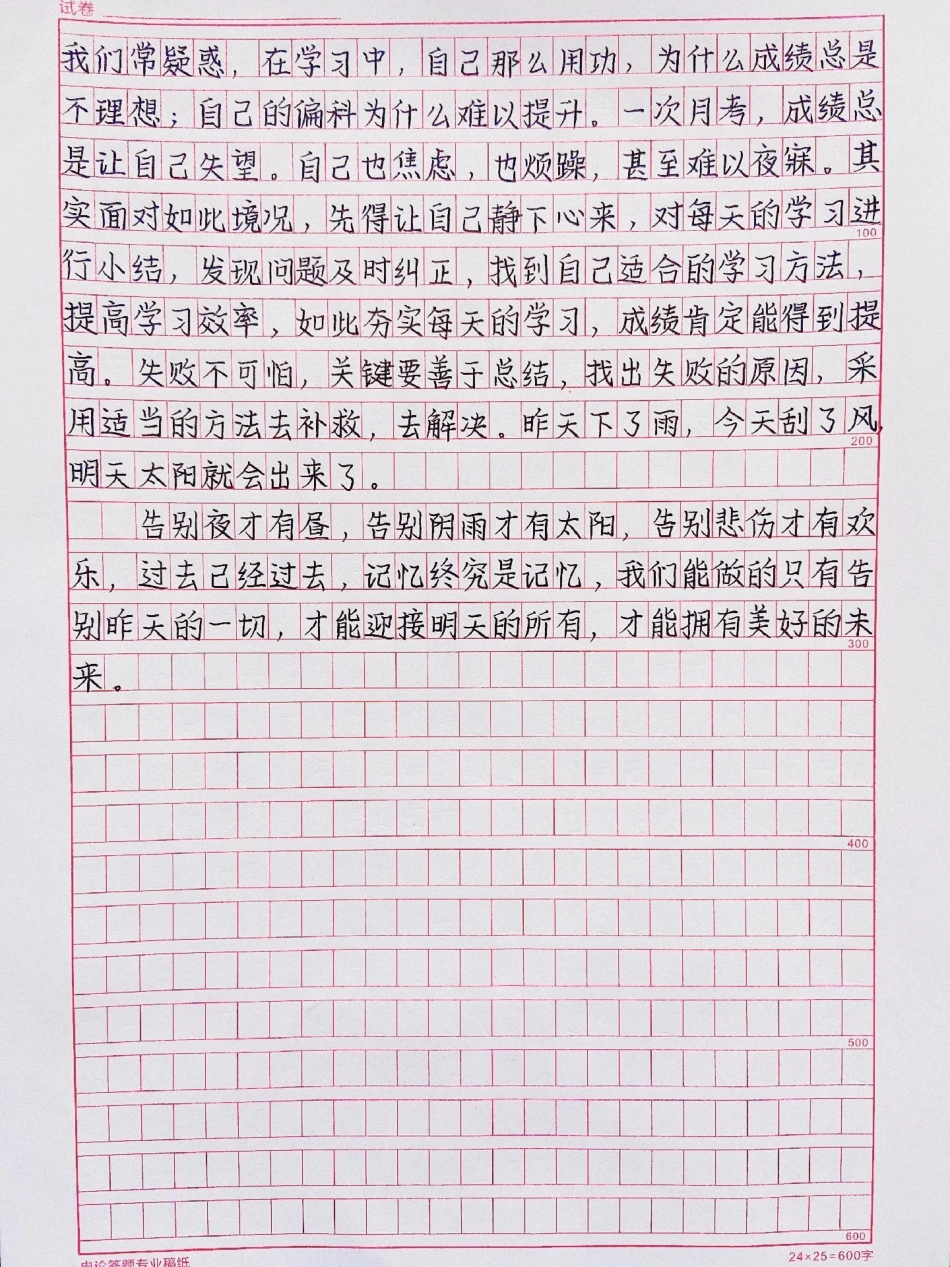 试卷
我们常疑惑，在学习中，自己那么用功，为什么成绩总是
不理想；自己的偏科为什么难以提升。一次月考，成绩总
是让自己失望。自己也焦虑，也烦躁，甚至难以夜寐。其
实面对如此境况，先得让自己静下心来，对每天的学习进
100
行小结，发现问题及时纠正，找到自己适合的学习方法，
提高学习效率，如此夯实每天的学习，成绩肯定能得到提
高。失败不可怕，关键要善于总结，找出失败的原因，采
用适当的方法去补救，去解决。昨天下了雨，今天刮了风，
200
明天太阳就会出来了。
告别夜才有昼，告别阴雨才有太阳，告别悲伤才有欢
乐，过去已经过去，记忆终究是记忆，我们能做的只有告
别昨天的一切，才能迎接明天的所有，才能拥有美好的未
300
来。
400
500
600
申论答题专业稿纸
24×25=600字